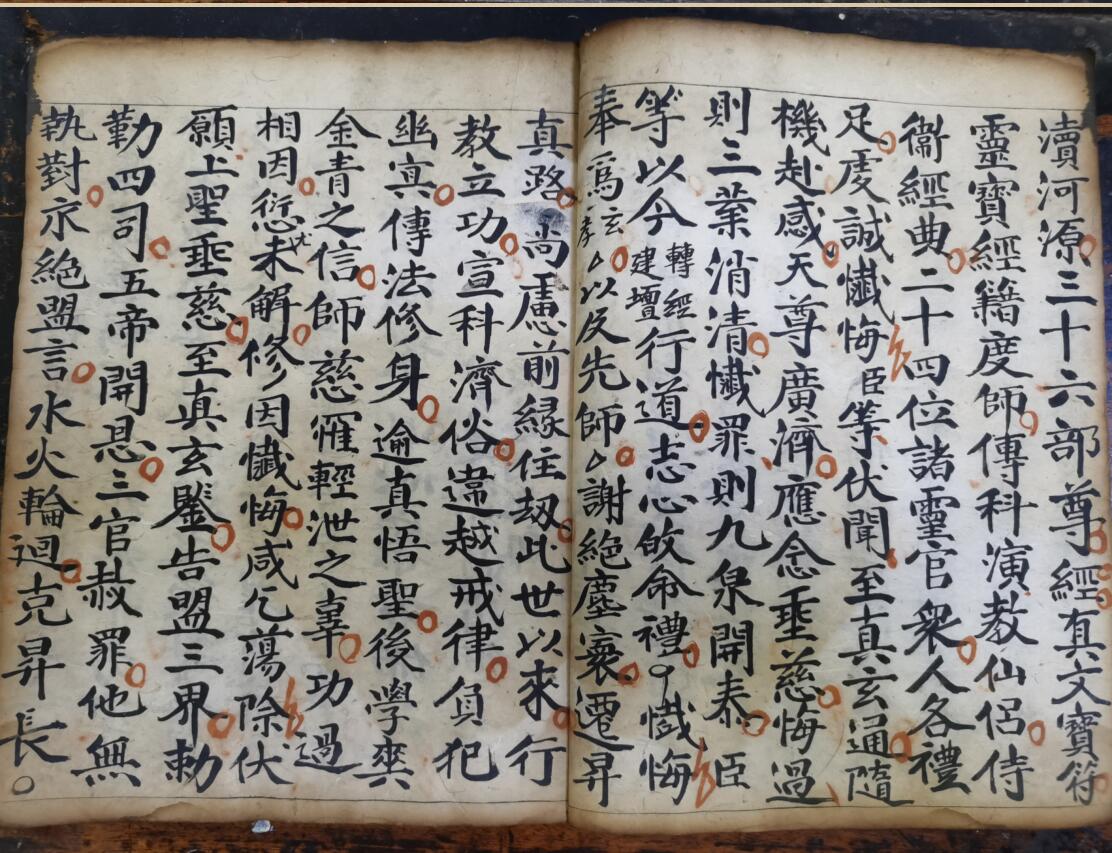 瀆河源三十六部尊經真文寶符
靈寶經籍度師傳科演教仙侶侍
衞經典二十四位諸靈官衆人各禮
足虔誠懺悔臣等伏聞至真玄通隨
機赴感天尊廣濟應念垂慈悔過
則三業消清懺罪則九泉開泰臣
等以今轉經建壇行道志心皈命禮懺悔
奉爲玄孝厶以及先師厶謝絕塵寰遷昇
真路尚慮前緣住刼此世以來行
教立功宣科濟俗嵓越戒律負犯
幽冥傳法修身逾真悟聖後學爽
金青之信師慈罹輕泄之辜功過
相因愆尤未解修因懺悔咸乞蕩除伏
願上聖垂慈至真玄鑒告盟三界勅
勒四司五帝開恩三官赦罪他無
執對永絕盟言水火輪迴克昇長